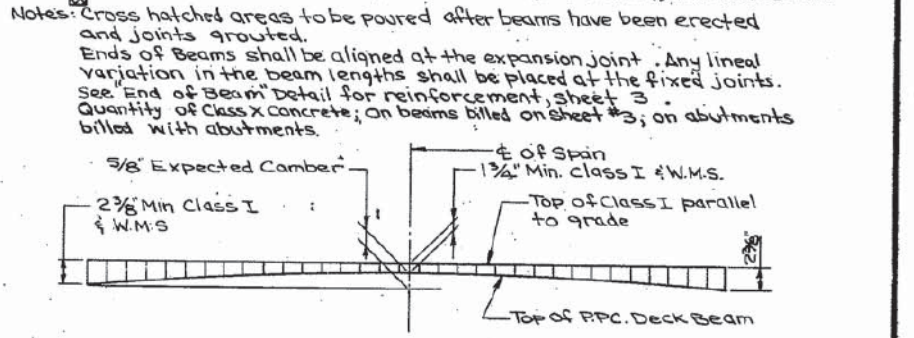 Notes: Cross hatched areas to be poured after beams have been erected
and joints grouted.
Ends of Beams shall be aligned at the expansion joint. Any lineal
variation in the beam lengths shall be placed at the fixed joints.
See "End of Beam" Detail for reinforcement, sheet 3.
Quantity of Class X concrete; On beams billed on sheet #3; on abutments
billed with abutments.
℄ of Span
5/8" Expected Camber
1 3/4" Min. Class I & W.M.S.
2 3/8" Min Class I
& W.M.S
Top of Class I parallel
to grade
2 3/8"
Top of P.P.C. Deck Beam